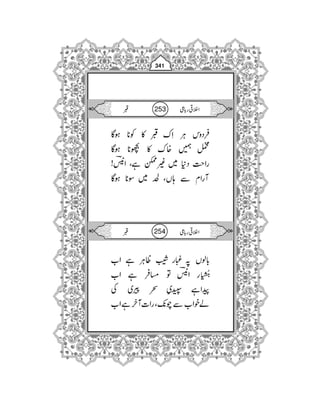 341
اخلاقی رباعی 253 قبر
فردوس ہر اک قبر کا کونا ہوگا
مخمل ہمیں خاک کا بچھونا ہوگا
راحت دنیا میں غیر ممکن ہے، انیسؔ!
آرام سے ہاں، لحد میں سونا ہوگا
اخلاقی رباعی 254 قبر
بالوں پہ غبارِ شیب ظاہر ہے اب
ہشیار انیسؔ تو مسافر ہے اب
پیدا ہے سپیدیِ سحرِ پیری کی
لے خواب سے چونک، رات آخر ہے اب